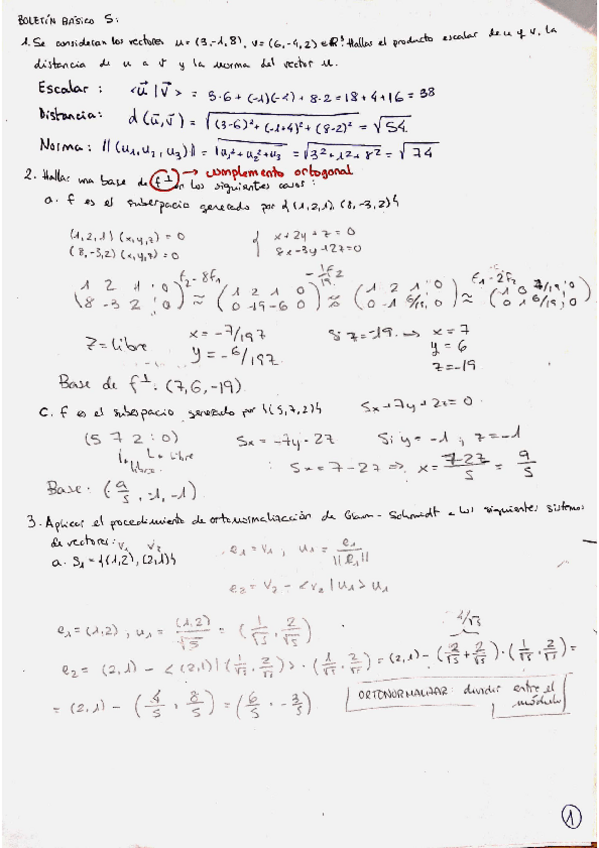 BOLETÍN BÁSICO 5:
1. Se consideran los vectores u = (3,-1,8), v = (6,-4,2) ∈ R³. Hallar el producto escalar de u y v, la
distancia de u a v y la norma del vector u.
Escalar : <u⃗ | v⃗> = 3·6 + (-1)(-4) + 8·2 = 18 + 4 + 16 = 38
Distancia: d(u⃗,v⃗) = √(3-6)² + (-1+4)² + (8-2)² = √54
Norma: ||(u₁,u₂,u₃)|| = √u₁² + u₂² + u₃ = √3² + 1² + 8² = √74
2. Hallar una base de f⊥ en los siguientes casos: → complemento ortogonal
a. f es el subespacio generado por {(1,2,1), (8,-3,2)}
(1,2,1)(x,y,z) = 0 { x + 2y + z = 0
(8,-3,2)(x,y,z) = 0 8x - 3y + 2z = 0
(1 2 1 : 0) f2-8f1 (1 2 1 0) -1/19 f2 (1 2 1 : 0) f1-2f2 (1 0 7/19 : 0)
(8 -3 2 : 0) ≈ (0 -19 -6 0) ≈ (0 -1 6/19 : 0) ≈ (0 1 6/19 : 0)
z = libre x = -7/19z Si z = -19 ⇒ x = 7
y = -6/19z y = 6
z = -19
Base de f⊥: (7,6,-19)
c. f es el subespacio generado por {(5,7,2)} 5x + 7y + 2z = 0
(5 7 2 : 0) 5x = -7y - 2z Si y = -1, z = -1
libre libre : 5x = 7 - 2z ⇒ x = 7-2z/5 = 9/5
Base: (9/5, -1, -1)
3. Aplicar el procedimiento de ortonormalización de Gram-Schmidt a los siguientes sistemas
de vectores: v₁ v₂
a. S₁ = {(1,2), (2,1)} e₁ = v₁, u₁ = e₁/||e₁||
e₂ = v₂ - <v₂ | u₁> u₁
4/√5
e₁ = (1,2), u₁ = (1,2)/√5 = (1/√5, 2/√5)
e₂ = (2,1) - <(2,1) | (1/√5, 2/√5)> · (1/√5, 2/√5) = (2,1) - (2/√5 + 2/√5) · (1/√5, 2/√5) =
= (2,1) - (4/5, 8/5) = (6/5, -3/5) ORTONORMALIZAR: dividir entre el
módulo
1